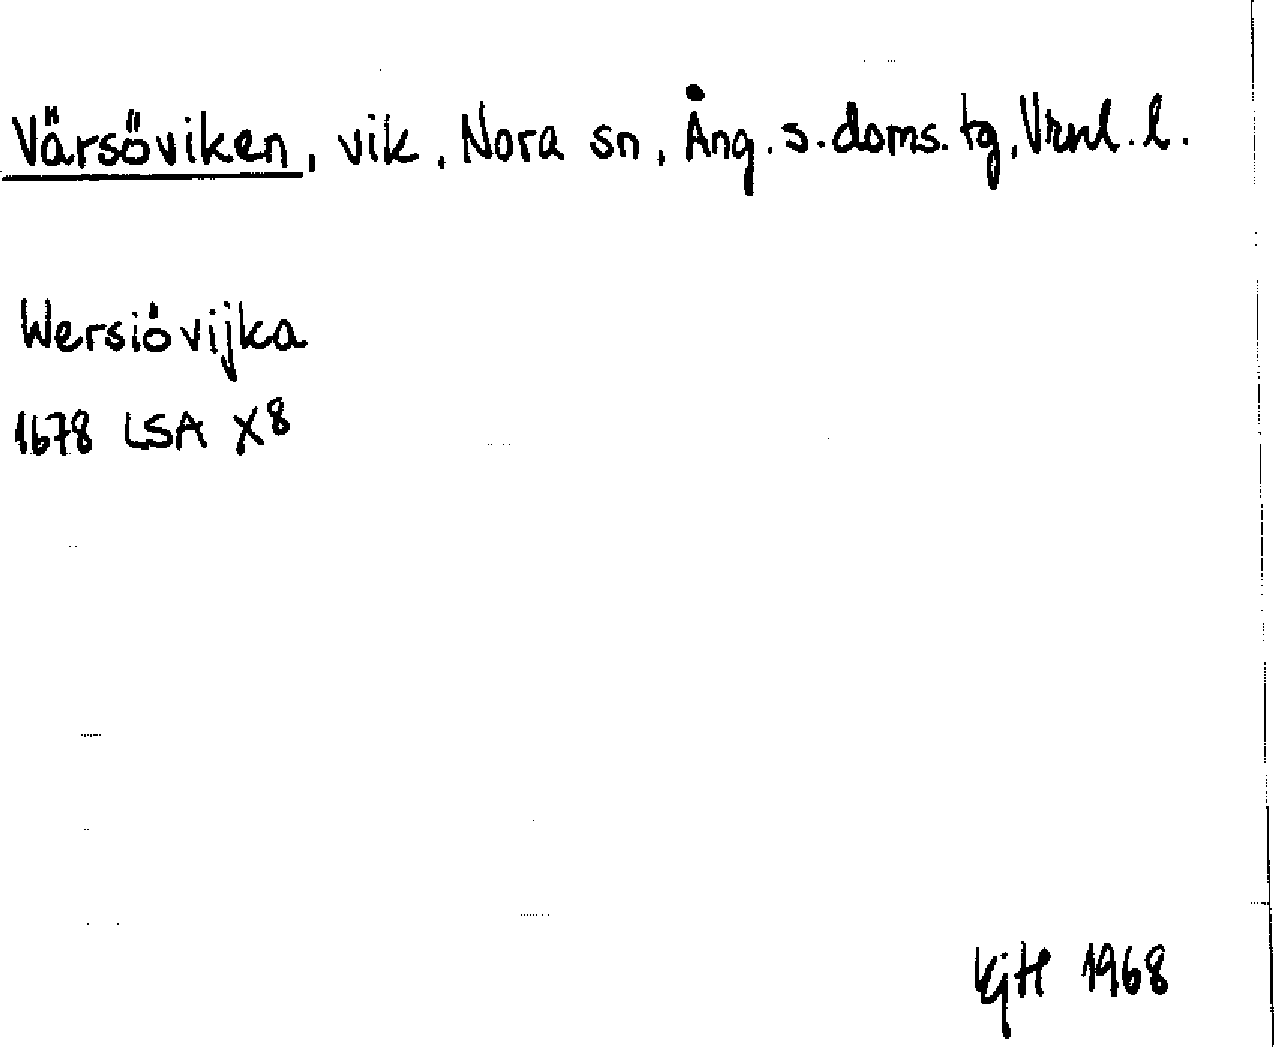 Värsöviken, vik, Nora sn, Ång. s. doms. tg, Vrnl. l.
Wersiövijka
1678 LSA X8
KjH 1968